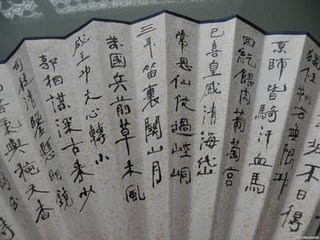 不日得
獨任朔方無限功
京師皆騎汗血馬
回紇餧肉葡萄宮
已喜皇威清海岱
常思仙仗過崆峒
三年笛裏關山月
萬國兵前草木風
成王功大心轉小
郭相謀深古來少
司徒清鑒懸明鏡
書氣與秋天杳